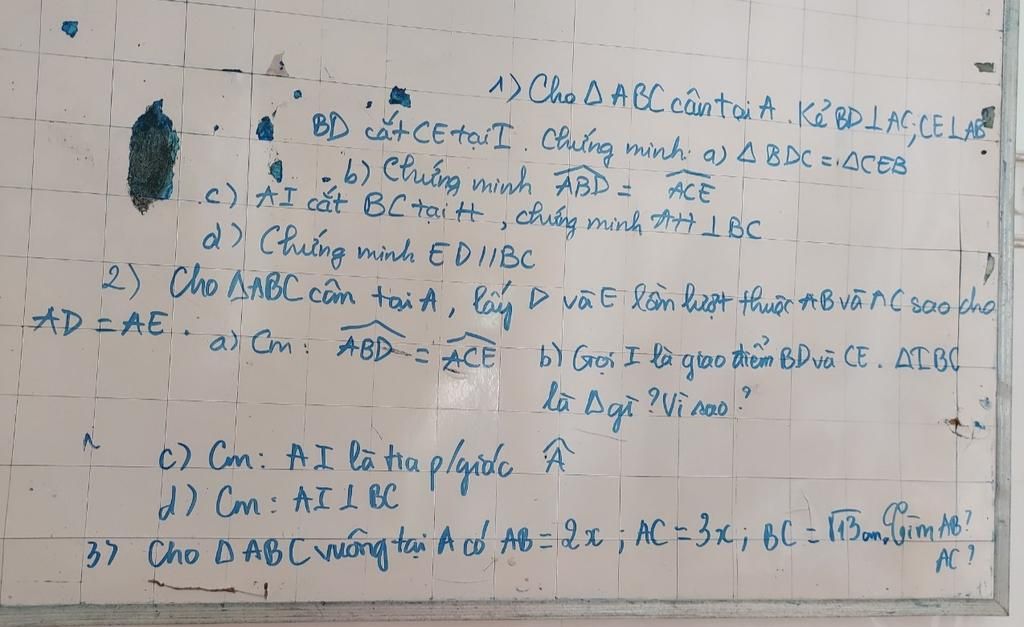 1) Cho Δ ABC cân tại A. Kẻ BD⊥AC; CE⊥AB
BD cắt CE tại I. Chứng minh: a) Δ BDC = ΔCEB
b) Chứng minh \widehat{ABD} = \widehat{ACE}
c) AI cắt BC tại H, chứng minh AH ⊥ BC
d) Chứng minh ED//BC
2) Cho ΔABC cân tại A, lấy D và E lần lượt thuộc AB và AC sao cho
AD = AE. a) Cm: \widehat{ABD} = \widehat{ACE} b) Gọi I là giao điểm BD và CE. ΔIBC
là Δ gì? Vì sao?
c) Cm: AI là tia p/giác \widehat{A}
d) Cm: AI ⊥ BC
3) Cho Δ ABC vuông tại A có AB = 2x; AC = 3x; BC = √13 cm. Tìm AB?
AC?